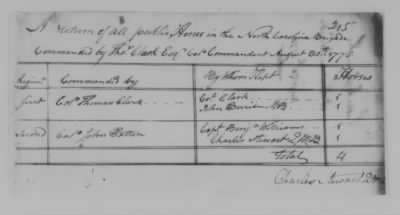 215
A return of all public Horses in the North Carolina Brigade
Commanded by Thos. Clark Esqr. Colo. Commandant August 30th. 1778
Regimts. Command'd by By Whom Kept Horses
first Colo. Thomas Clark Col. Clark 1
John B 1
Second Colo. John Patton Capt. Benjn. Williams 1
Charles Stewart Q M 1
Total 4
Charles Steward